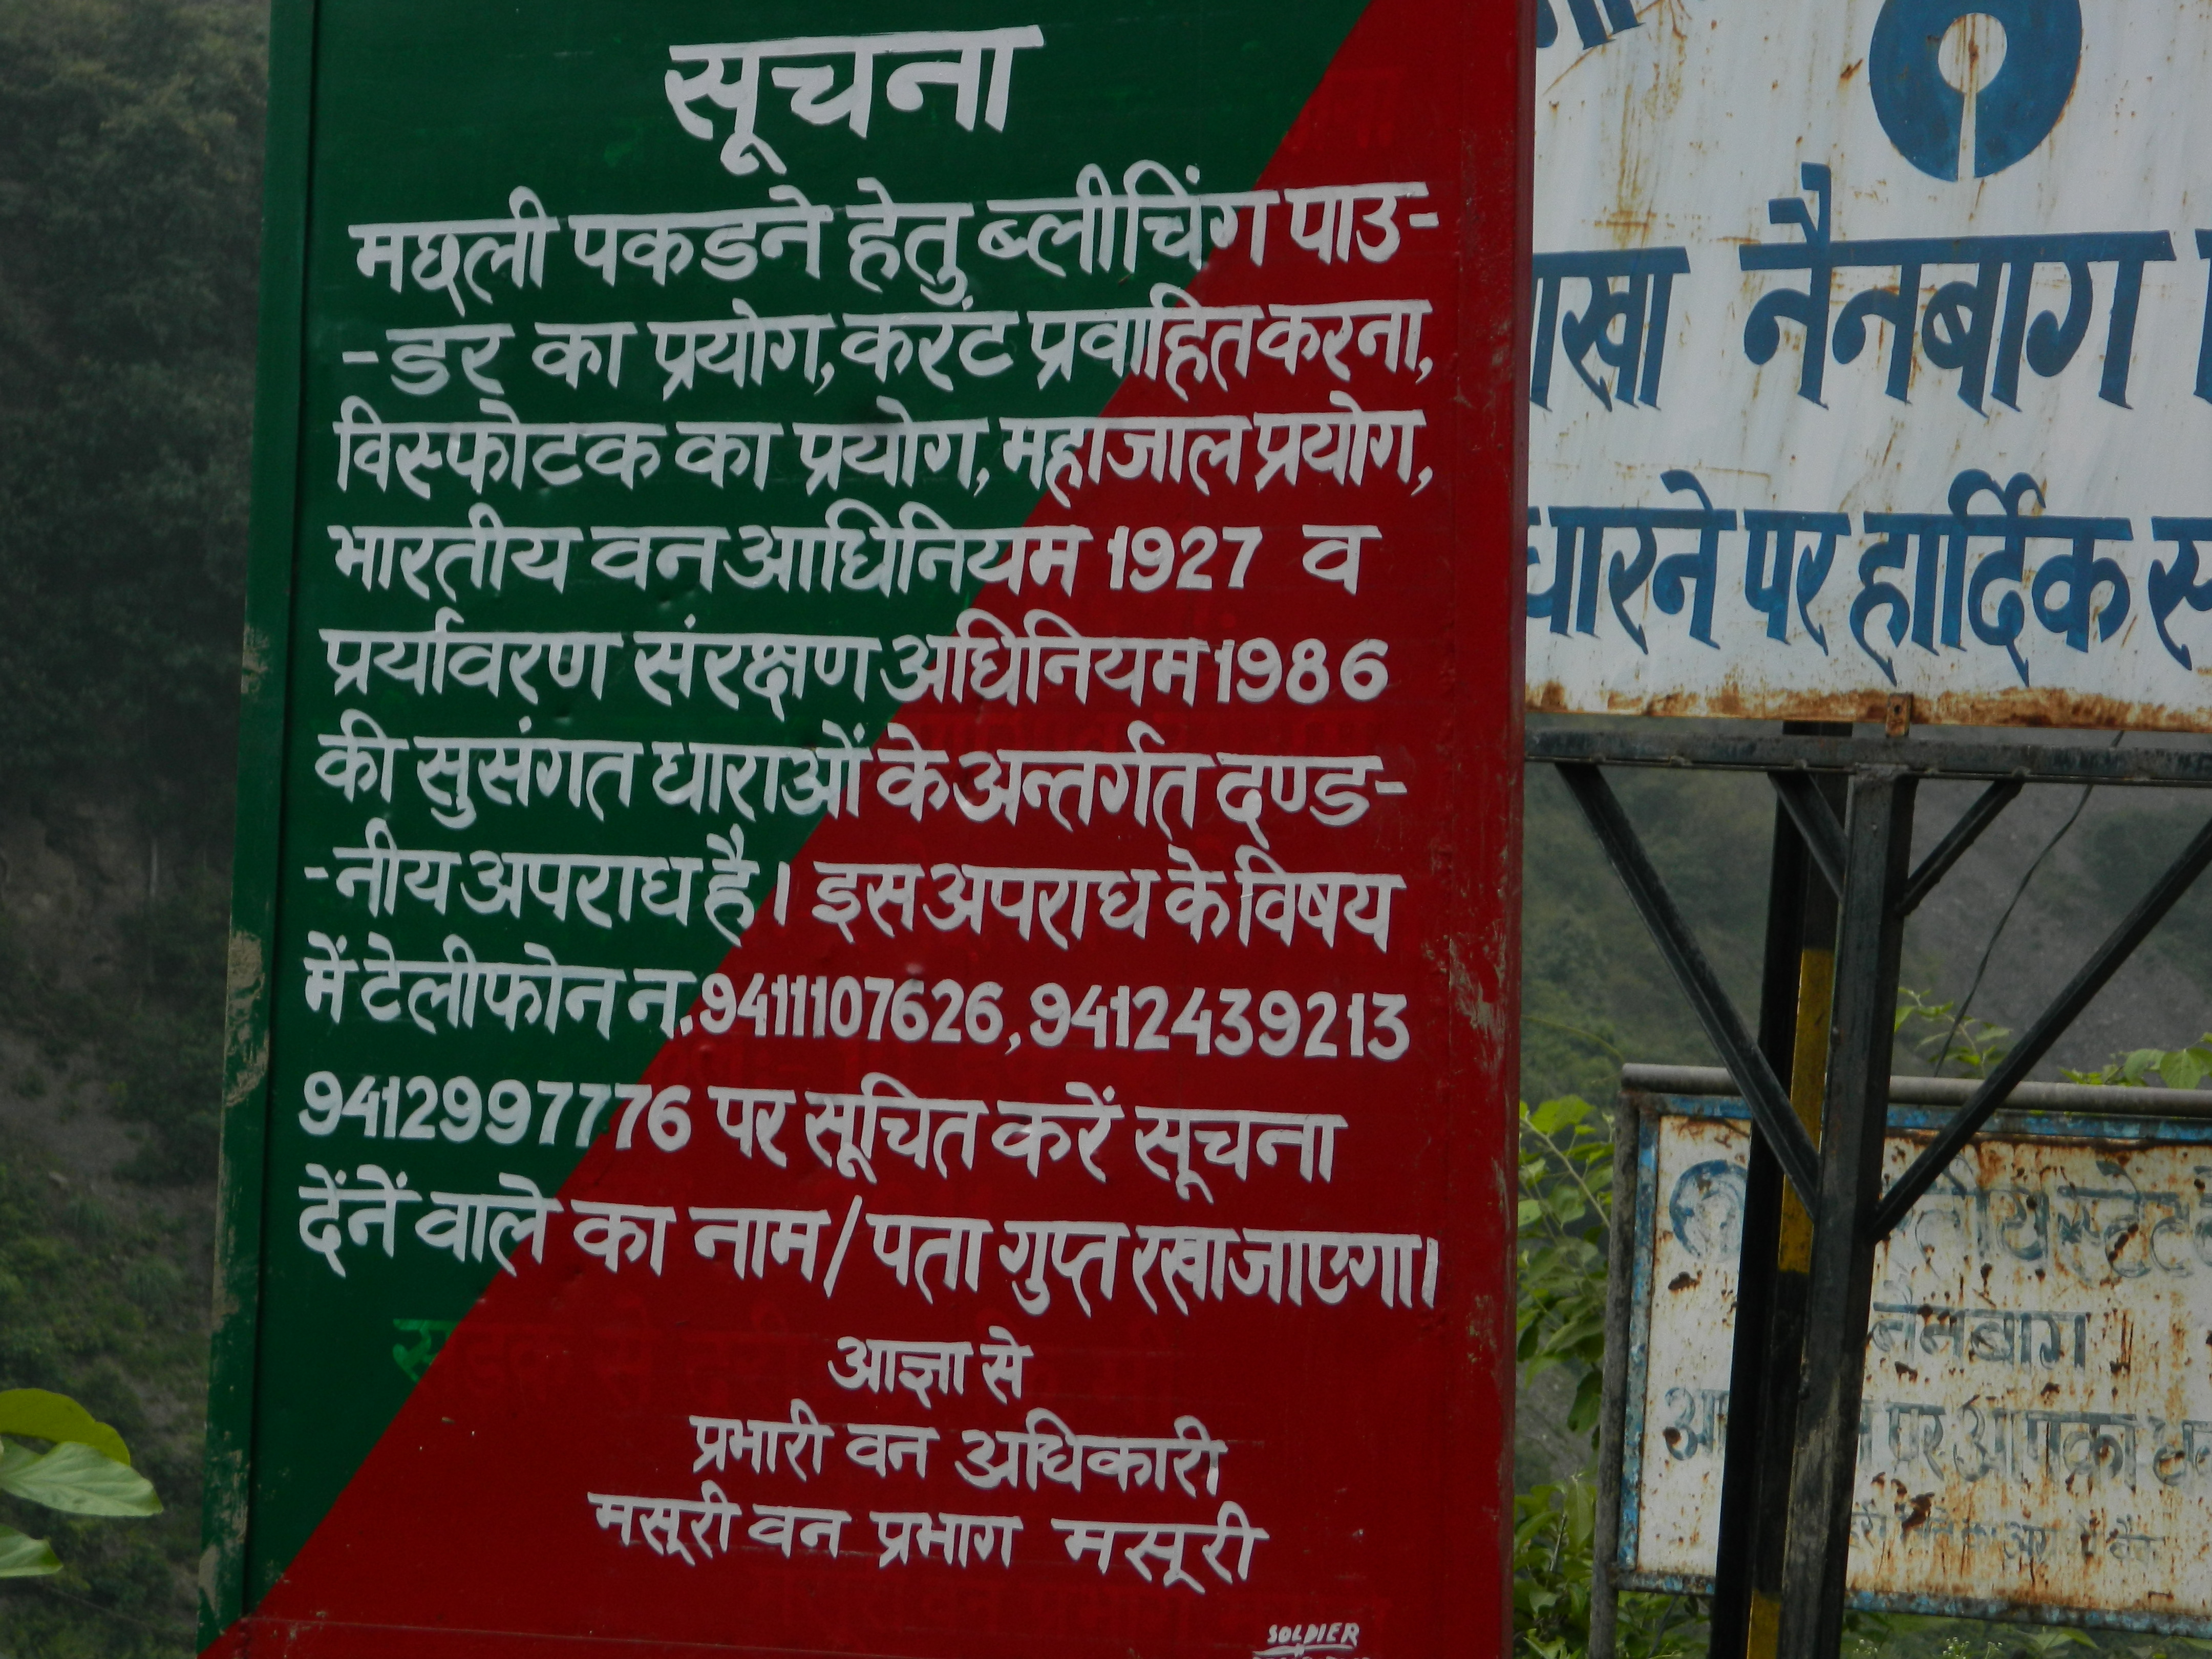 सूचना
मछली पकडने हेतु ब्लीचिंग पाउ-
-डर का प्रयोग, करंट प्रवाहित करना,
विस्फोटक का प्रयोग, महाजाल प्रयोग,
भारतीय वन आधिनियम 1927 व
प्रर्यावरण संरक्षण अधिनियम 1986
की सुसंगत धाराओं के अन्तर्गत दण्ड-
-नीय अपराध है। इस अपराध के विषय
में टेलीफोन न. 9411107626, 9412439213
9412997776 पर सूचित करें सूचना
देंनें वाले का नाम/पता गुप्त रखा जाएगा।
आज्ञा से
प्रभारी वन अधिकारी
मसूरी वन प्रभाग मसूरी
SOLDIER
नैनबाग
पर हार्दिक
नैनबाग
पर आपका